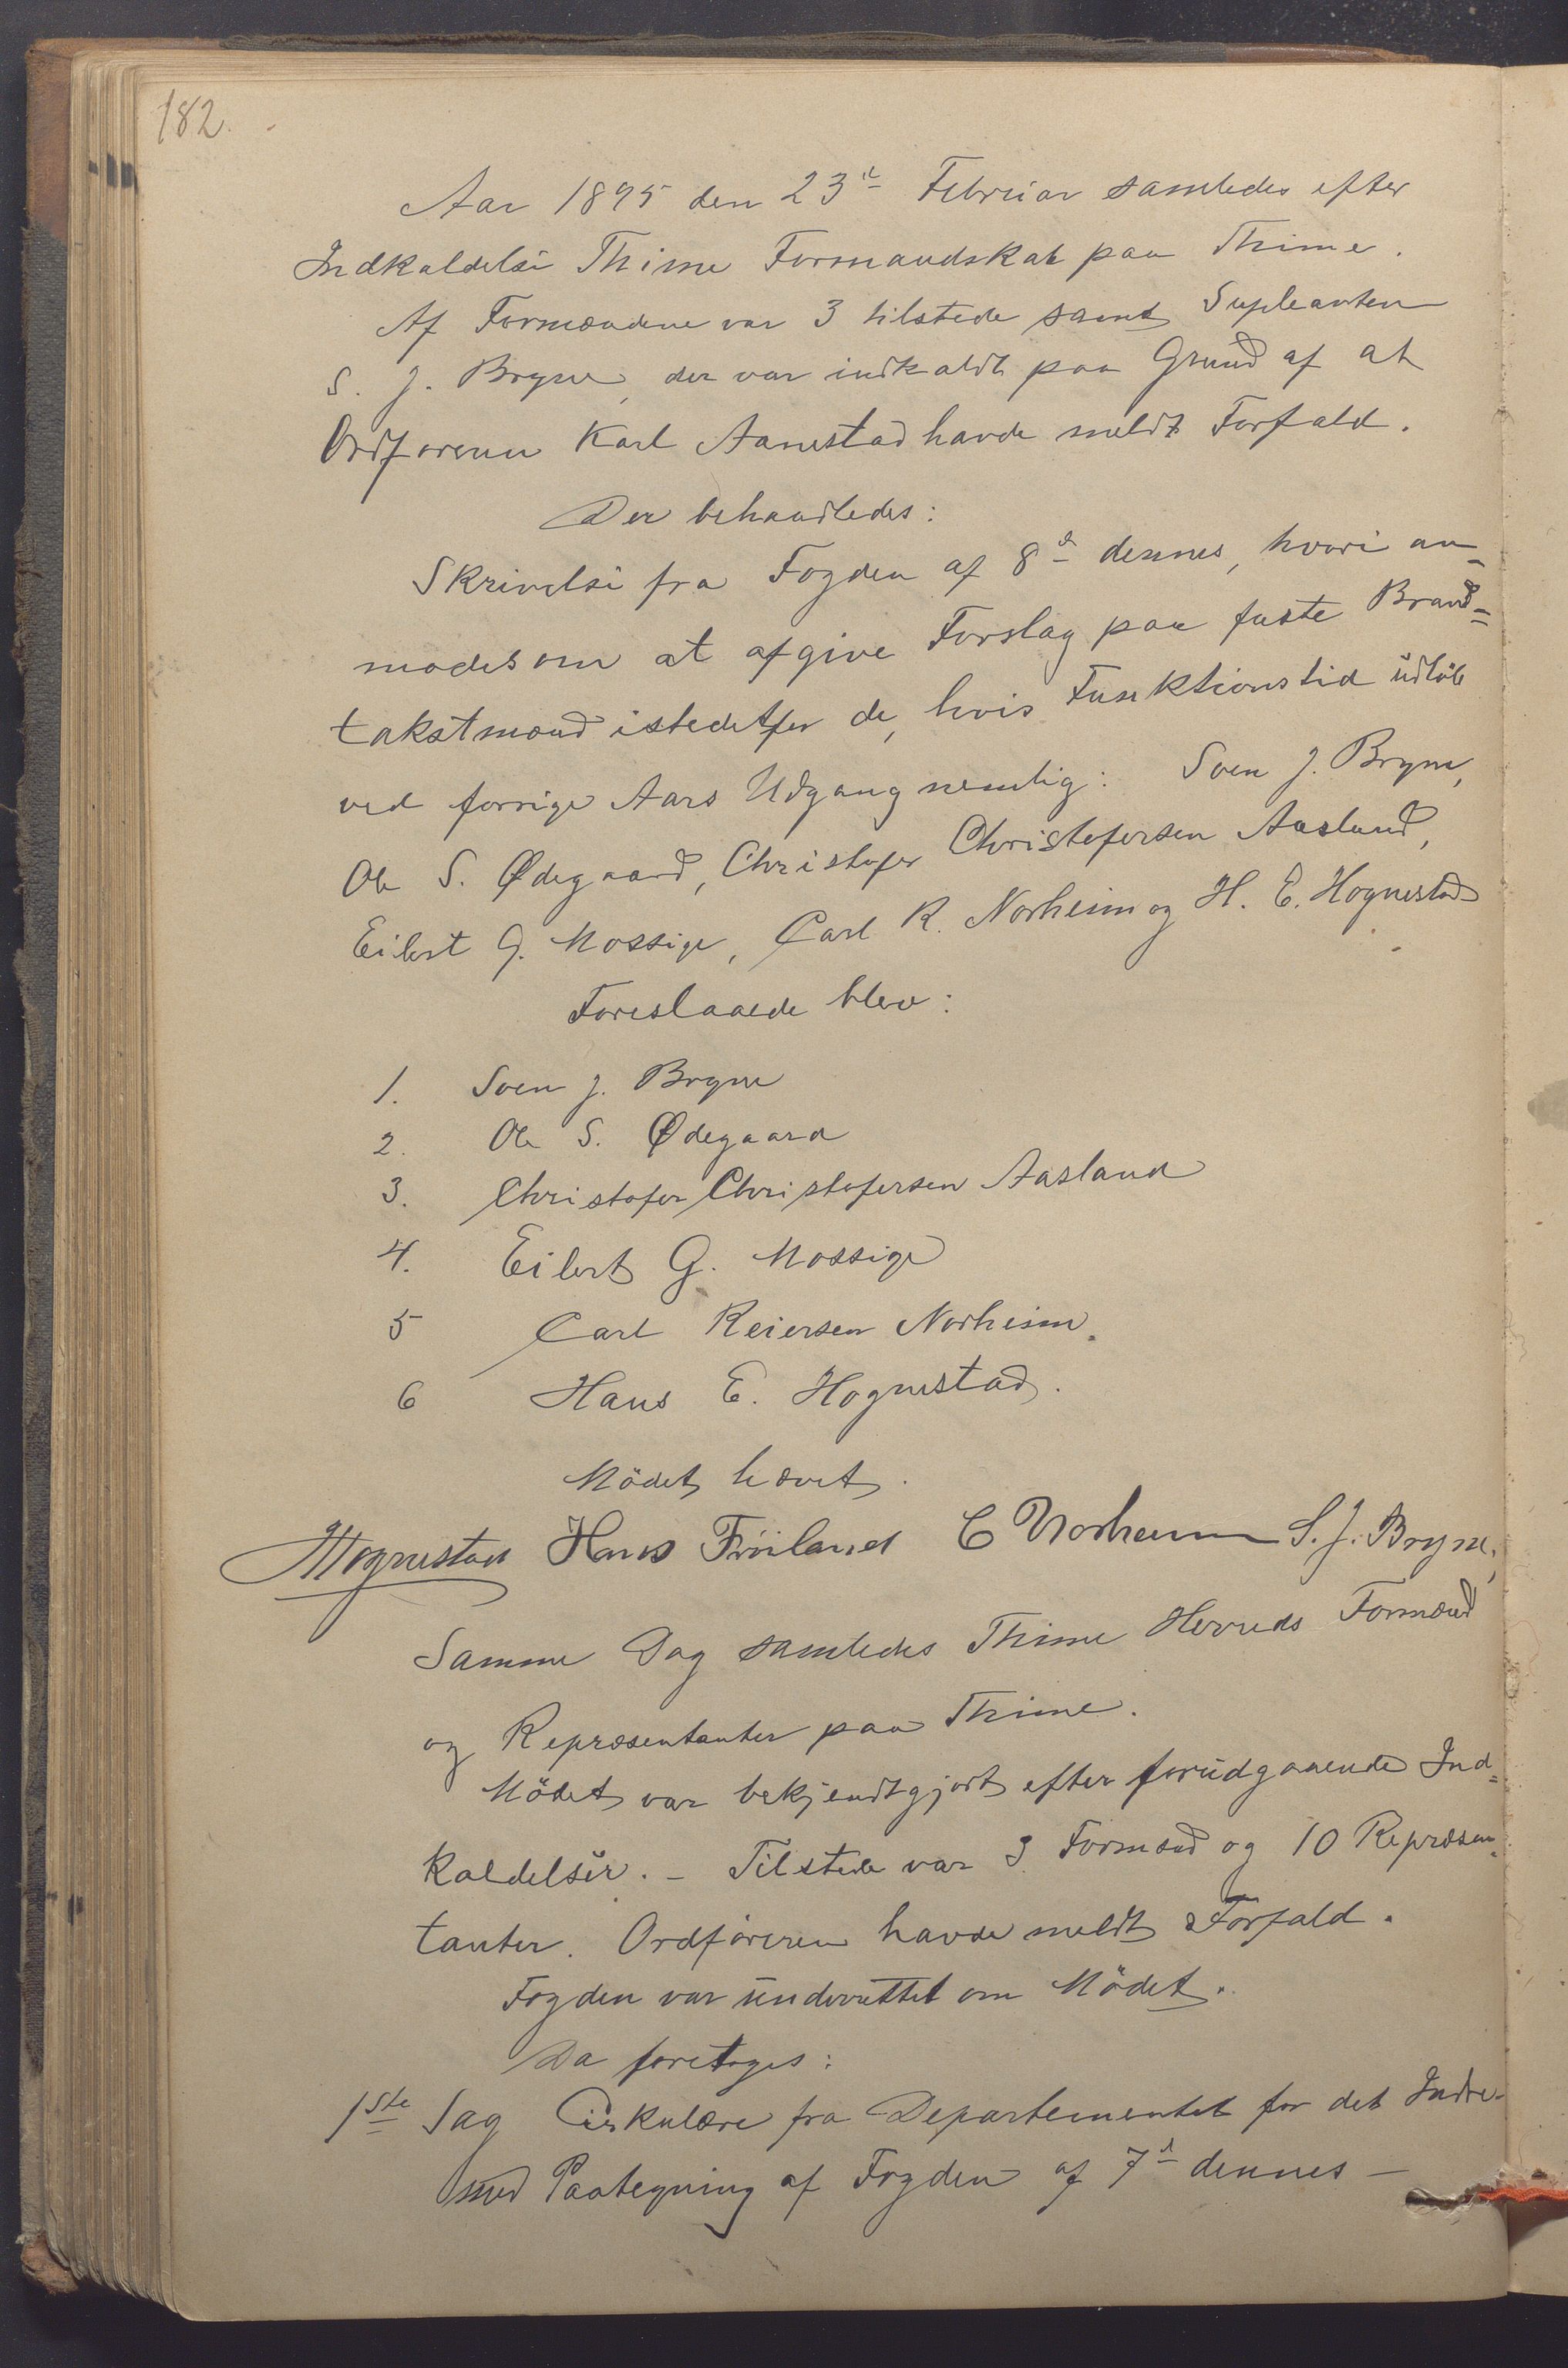 182.
Aar 1895 den 23d Februar samledes efter
Indkaldelse Thime Formandskab paa Thime.
Af Formændene var 3 tilstede samt Supleanten
S. J. Bryne, der var indkaldt paa Grund af at
Ordføreren Karl Aanestad havde meldt Forfald.
Der behandledes:
Skrivelse fra Fogden af 8d dennes, hvori an-
modes om at afgive Forslag paa faste Brand-
takstmænd istedetfor de, hvis Funktionstid udløb
ved forrige Aars Udgang nemlig: Sven J. Bryne,
Ole S. Ødegaard, Christofer Christofersen Aasland,
Eilert G. Mossige, Carl R. Norheim og H. E. Hognestad
Foreslaaede blev:
1. Sven J. Bryne
2. Ole S. Ødegaard
3. Christofer Christofersen Aasland
4. Eilert G. Mossige
5 Carl Reiersen Norheim.
6 Hans E. Hognestad.
Mödet hævet.
Hognestad Hans Fröiland C Norheim S. J. Bryne,
Samme Dag samledes Thime Herreds Formænd
og Repræsentanter paa Thime.
Mödet var bekjendtgjort efter forudgaaende Ind-
kaldelser. – Tilstede var 3 Formænd og 10 Repræsen-
tanter. Ordföreren havde meldt Forfald.
Fogden var underrettet om Mödet.
Da foretoges:
1ste Sag Cirkulære fra Departementet for det Indre
med Paategning af Fogden af 7d dennes –